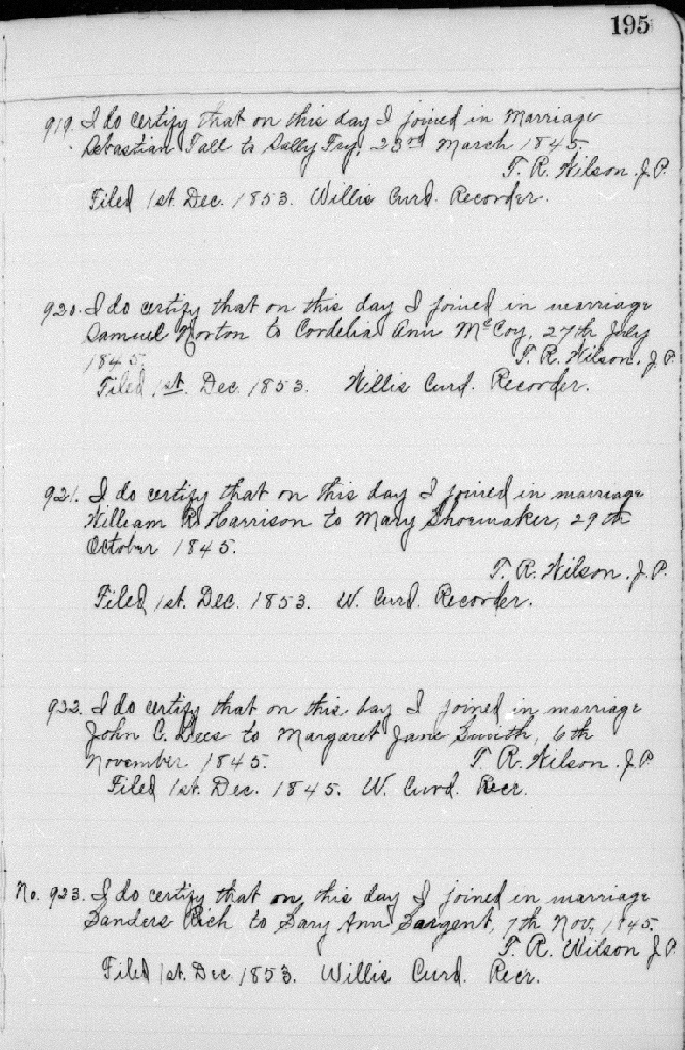 195
919. I do certify that on this day I joined in Marriage
Sebastian Tall to Sally Fry, 23rd March 1845.
T. R. Wilson. J. P.
Filed 1st. Dec. 1853. Willis Curd. Recorder.
920. I do certify that on this day I joined in marriage
Samuel Norton to Cordelia Ann McCoy, 27th July
1845.
T. R. Wilson. J. P.
Filed 1st. Dec. 1853. Willis Curd. Recorder.
921. I do certify that on this day I joined in marriage
William R. Harrison to Mary Shoemaker, 29th
October 1845.
T. R. Wilson. J. P.
Filed 1st. Dec. 1853. W. Curd. Recorder.
922. I do certify that on this day I joined in marriage
John C. to Margaret Jane Smith, 6th
November 1845. T. R. Wilson. J. P.
Filed 1st. Dec. 1845. W. Curd. Recr.
No. 923. I do certify that on this day I joined in marriage
Sanders Rich to Sary Ann Sargent, 7th Nov, 1845.
T. R. Wilson J. P.
Filed 1st. Dec 1853. Willis Curd. Recr.